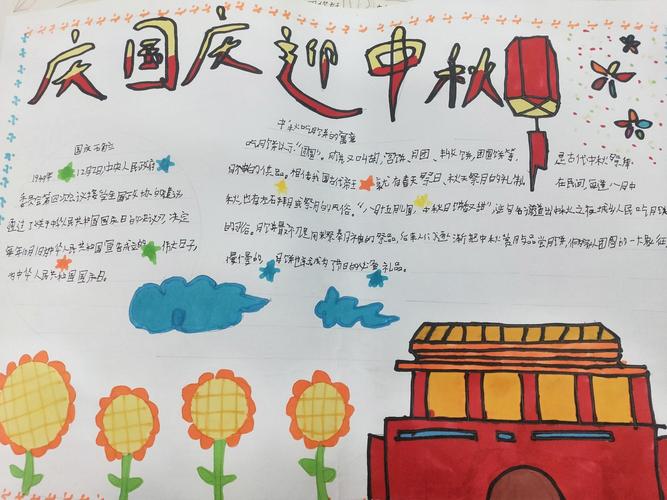 庆国庆迎中秋
国庆的
1949年12月2日中央人民政府
委员会第四次会议接受全国政协的建议
通过了关于中华人民共和国国庆日的决议决定
每年10月1日中华人民共和国宣告成立的伟大日子,
为中华人民共和国国庆日。
中秋吃月饼的寓意
吃月饼以示"团圆"。月饼又叫胡饼、宫饼、月团、团圆饼等, 是古代中秋祭拜
月神的供品。相传我国古代帝王就有春天祭日、秋天祭月的礼制, 在民间,每逢八月中
秋,也有左右拜月或祭月的风俗。"八月十五月儿圆,中秋月饼香又甜"
的习俗。月饼最初是用来祭奉月神的祭品,后来人们逐渐把中秋赏月与品尝月饼,作为家人团圆的一大象征
慢慢的,月饼也就成为了节日的必备礼品。